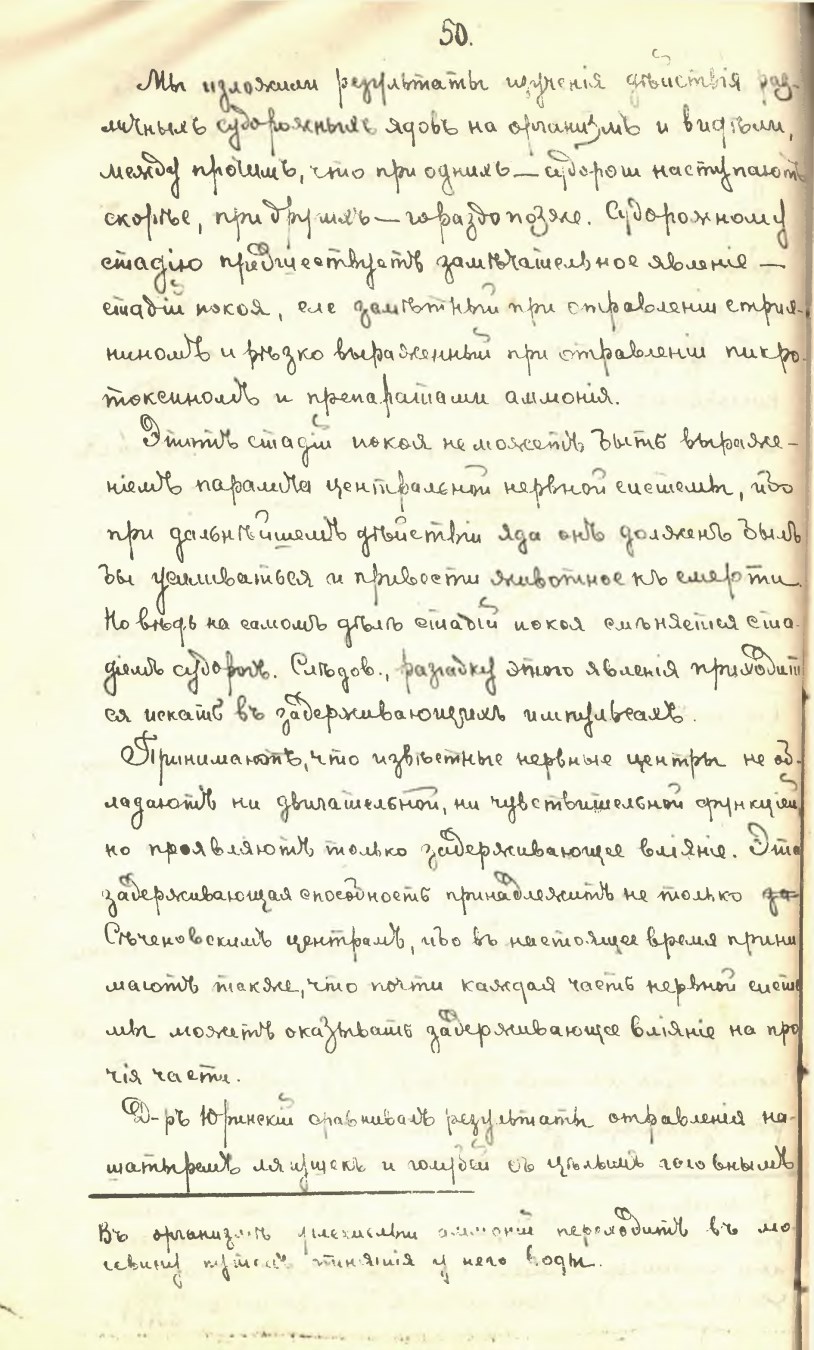 50.
Мы изложили результаты изученія дѣйствія раз-
личныхъ судорожныхъ ядовъ на организмъ и видѣли,
между прочимъ, что при однихъ — судороги наступаютъ
скорѣе, при другихъ — гораздо позже. Судорожному
стадію предшествуетъ замѣчательное явленіе —
стадій покоя, еле замѣтный при отравленіи стрих-
ниномъ и рѣзко выраженный при отравленіи пикро-
токсиномъ и препаратами аммонія.
Этотъ стадій покоя не можетъ быть выраже-
ніемъ паралича центральной нервной системы, ибо
при дальнѣйшемъ дѣйствіи яда онъ долженъ былъ
бы усиливаться и привести животное къ смерти.
Но вѣдь на самомъ дѣлѣ стадій покоя смѣняется ста-
діемъ судорогъ. Слѣдов., разгадку этого явленія приходит
ся искать въ задерживающихъ импульсахъ.
Принимаютъ, что извѣстные нервные центры не об-
ладаютъ ни двигательной, ни чувствительной функціей,
но проявляютъ только задерживающее вліяніе. Эта
задерживающая способность принадлежитъ не только
Сѣченовскимъ центрамъ, ибо въ настоящее время прини
маютъ также, что почти каждая часть нервной систе
мы можетъ оказывать задерживающее вліяніе на про
чія части.
Д-ръ Юринскій сравнивалъ результаты отравленія на-
шатыремъ лягушекъ и голубей съ цѣлымъ головнымъ
Въ организмѣ углекислый аммоній переходитъ въ мо
чевину путемъ отнятія у него воды.